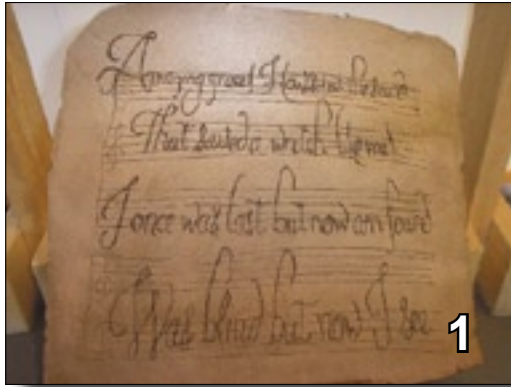 Amazing grace! How sweet the sound
That saved a wretch like me!
I once was lost but now am found
Was blind but now I see
1